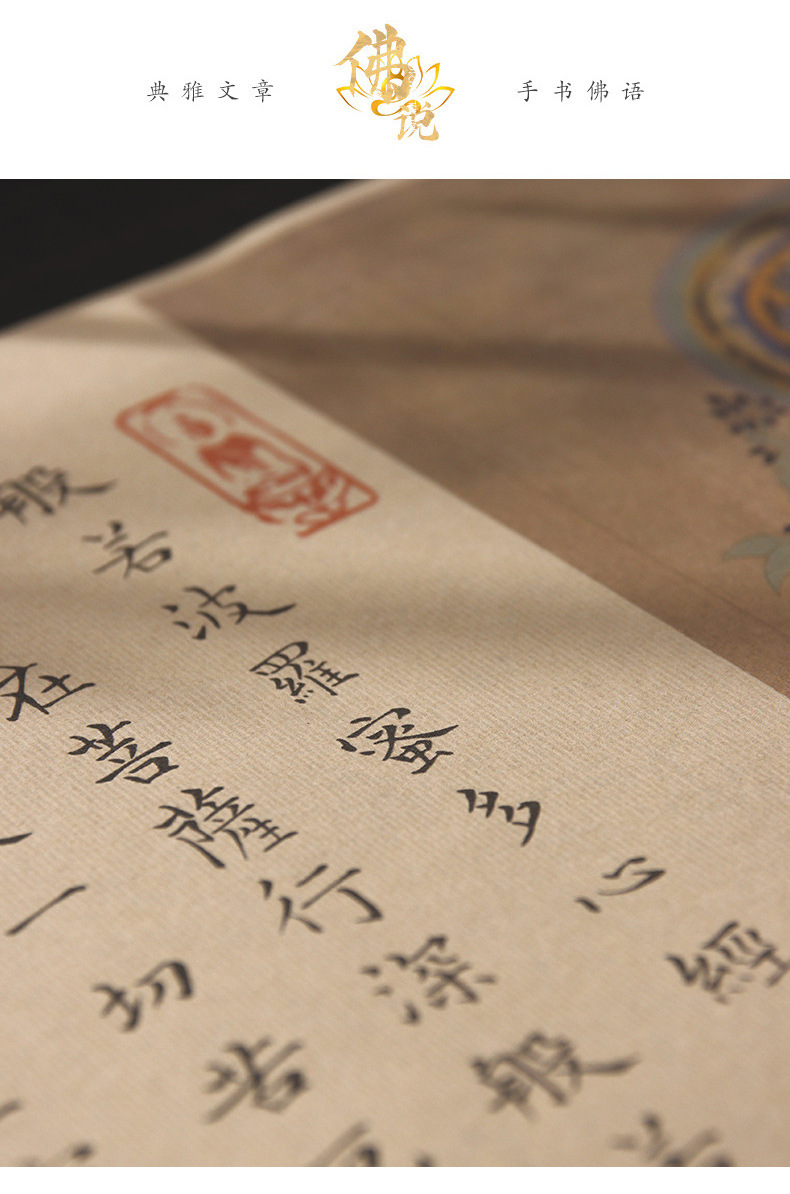 典雅文章
佛说
手书佛语
般若波羅蜜多心經
在菩薩行深般若
一切苦